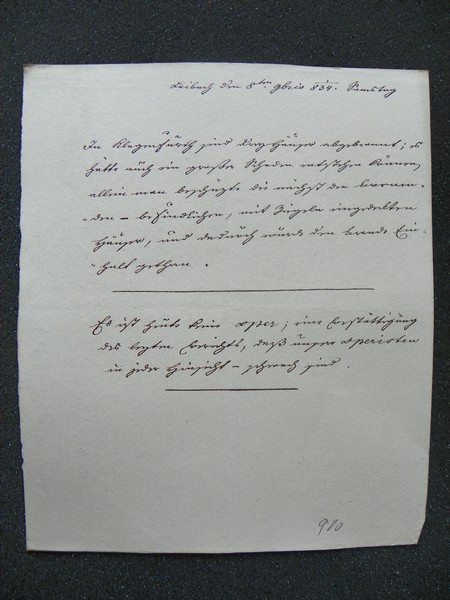 Laibach den 8ten 9bris 834. Samstag
In Klagenfurth sind drey Häuser abgebrannt; es
hätte auch ein großer Schaden entstehen können,
allein man beschützte die nächst den brennen-
den - befindlichen, mit Ziegeln eingedekten
Häuser, und dadurch wurde dem brande Ein-
halt gethan.
Es ist heute keine oper; eine Bestättigung
des lezten Berichts, daß unsere operisten
in jeder Hinsicht - schwach sind.
980